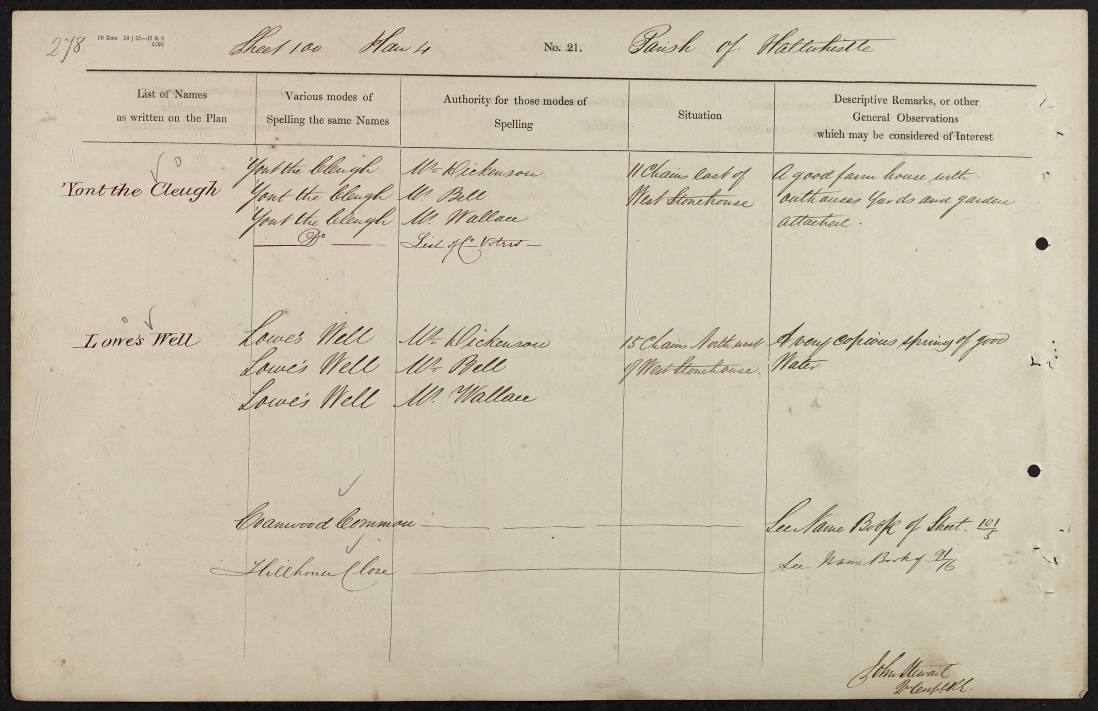 278
Sheet 100 Plan 4 No. 21. Parish of Haltwhistle
List of Names as written on the Plan
Various modes of Spelling the same Names
Authority for those modes of Spelling
Situation
Descriptive Remarks, or other General Observations which may be considered of Interest
'Yont the Cleugh 'Yont the Cleugh Mr Dickenson 11 Chains east of A good farm house with
'Yont the Cleugh Mr Bell West Stonehouse outhouses Yards and garden
'Yont the Cleugh Mr Wallace attached.
Do List of Co. Voters
Lowe's Well Lowe's Well Mr Dickenson 15 Chains North west A very copious spring of good
Lowe's Well Mr Bell of West Stonehouse. Water
Lowe's Well Mr. Wallace
Coanwood Common See Name Book of Sheet. 101/5
Hillhouse Close See Name Book of 91/6
John Stewart